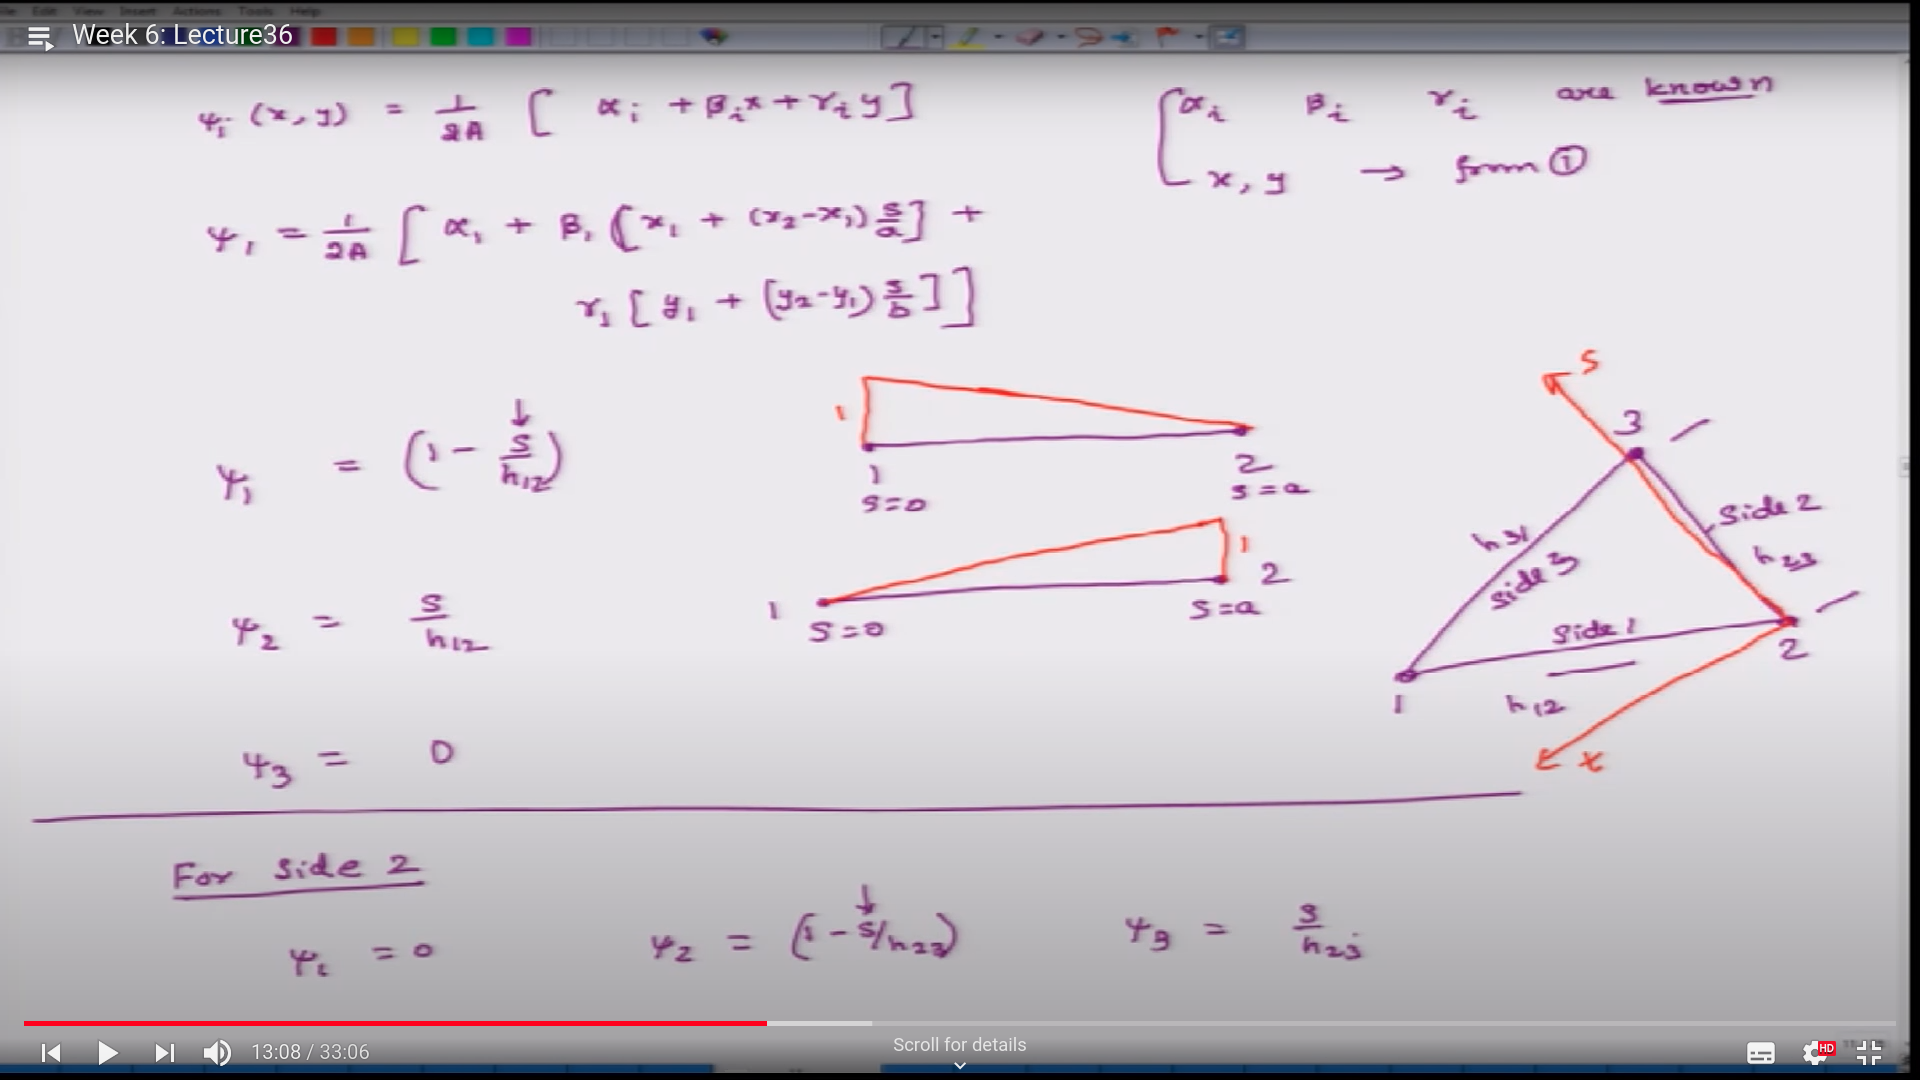 File Edit View Insert Actions Tools Help
Week 6: Lecture36
ψi (x, y) = 1/2A [ αi + βi x + γi y ]
αi βi γi are known
x, y → from ①
ψ1 = 1/2A [ α1 + β1 [ x1 + (x2-x1) s/a ] +
γ1 [ y1 + (y2-y1) s/b ] ]
ψ1 = (1 - s/h12)
1
1
s=0
2
s=a
ψ2 = s/h12
1
s=0
1
2
s=a
ψ3 = 0
s
3
side 2
h23
h31
side 3
side 1
2
1
h12
x
For side 2
ψ1 = 0 ψ2 = (1 - s/h23) ψ3 = s/h23
13:08 / 33:06
Scroll for details
HD